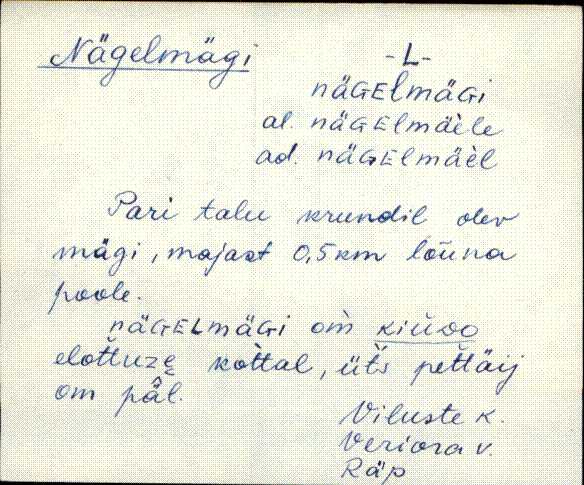 Nägelmägi -L-
näGElmäGi
al. näGElmäèle
ad. näGElmäèl
Pari talu krundil olev
mägi, majast 0,5 km lõuna
poole.
näGELmäGi om̀ kiùoo
elot̀tuzȩ kot̀tal, üt̀s pet̀täij
om pä̂l.
Viluste k.
Veriora v.
Räp